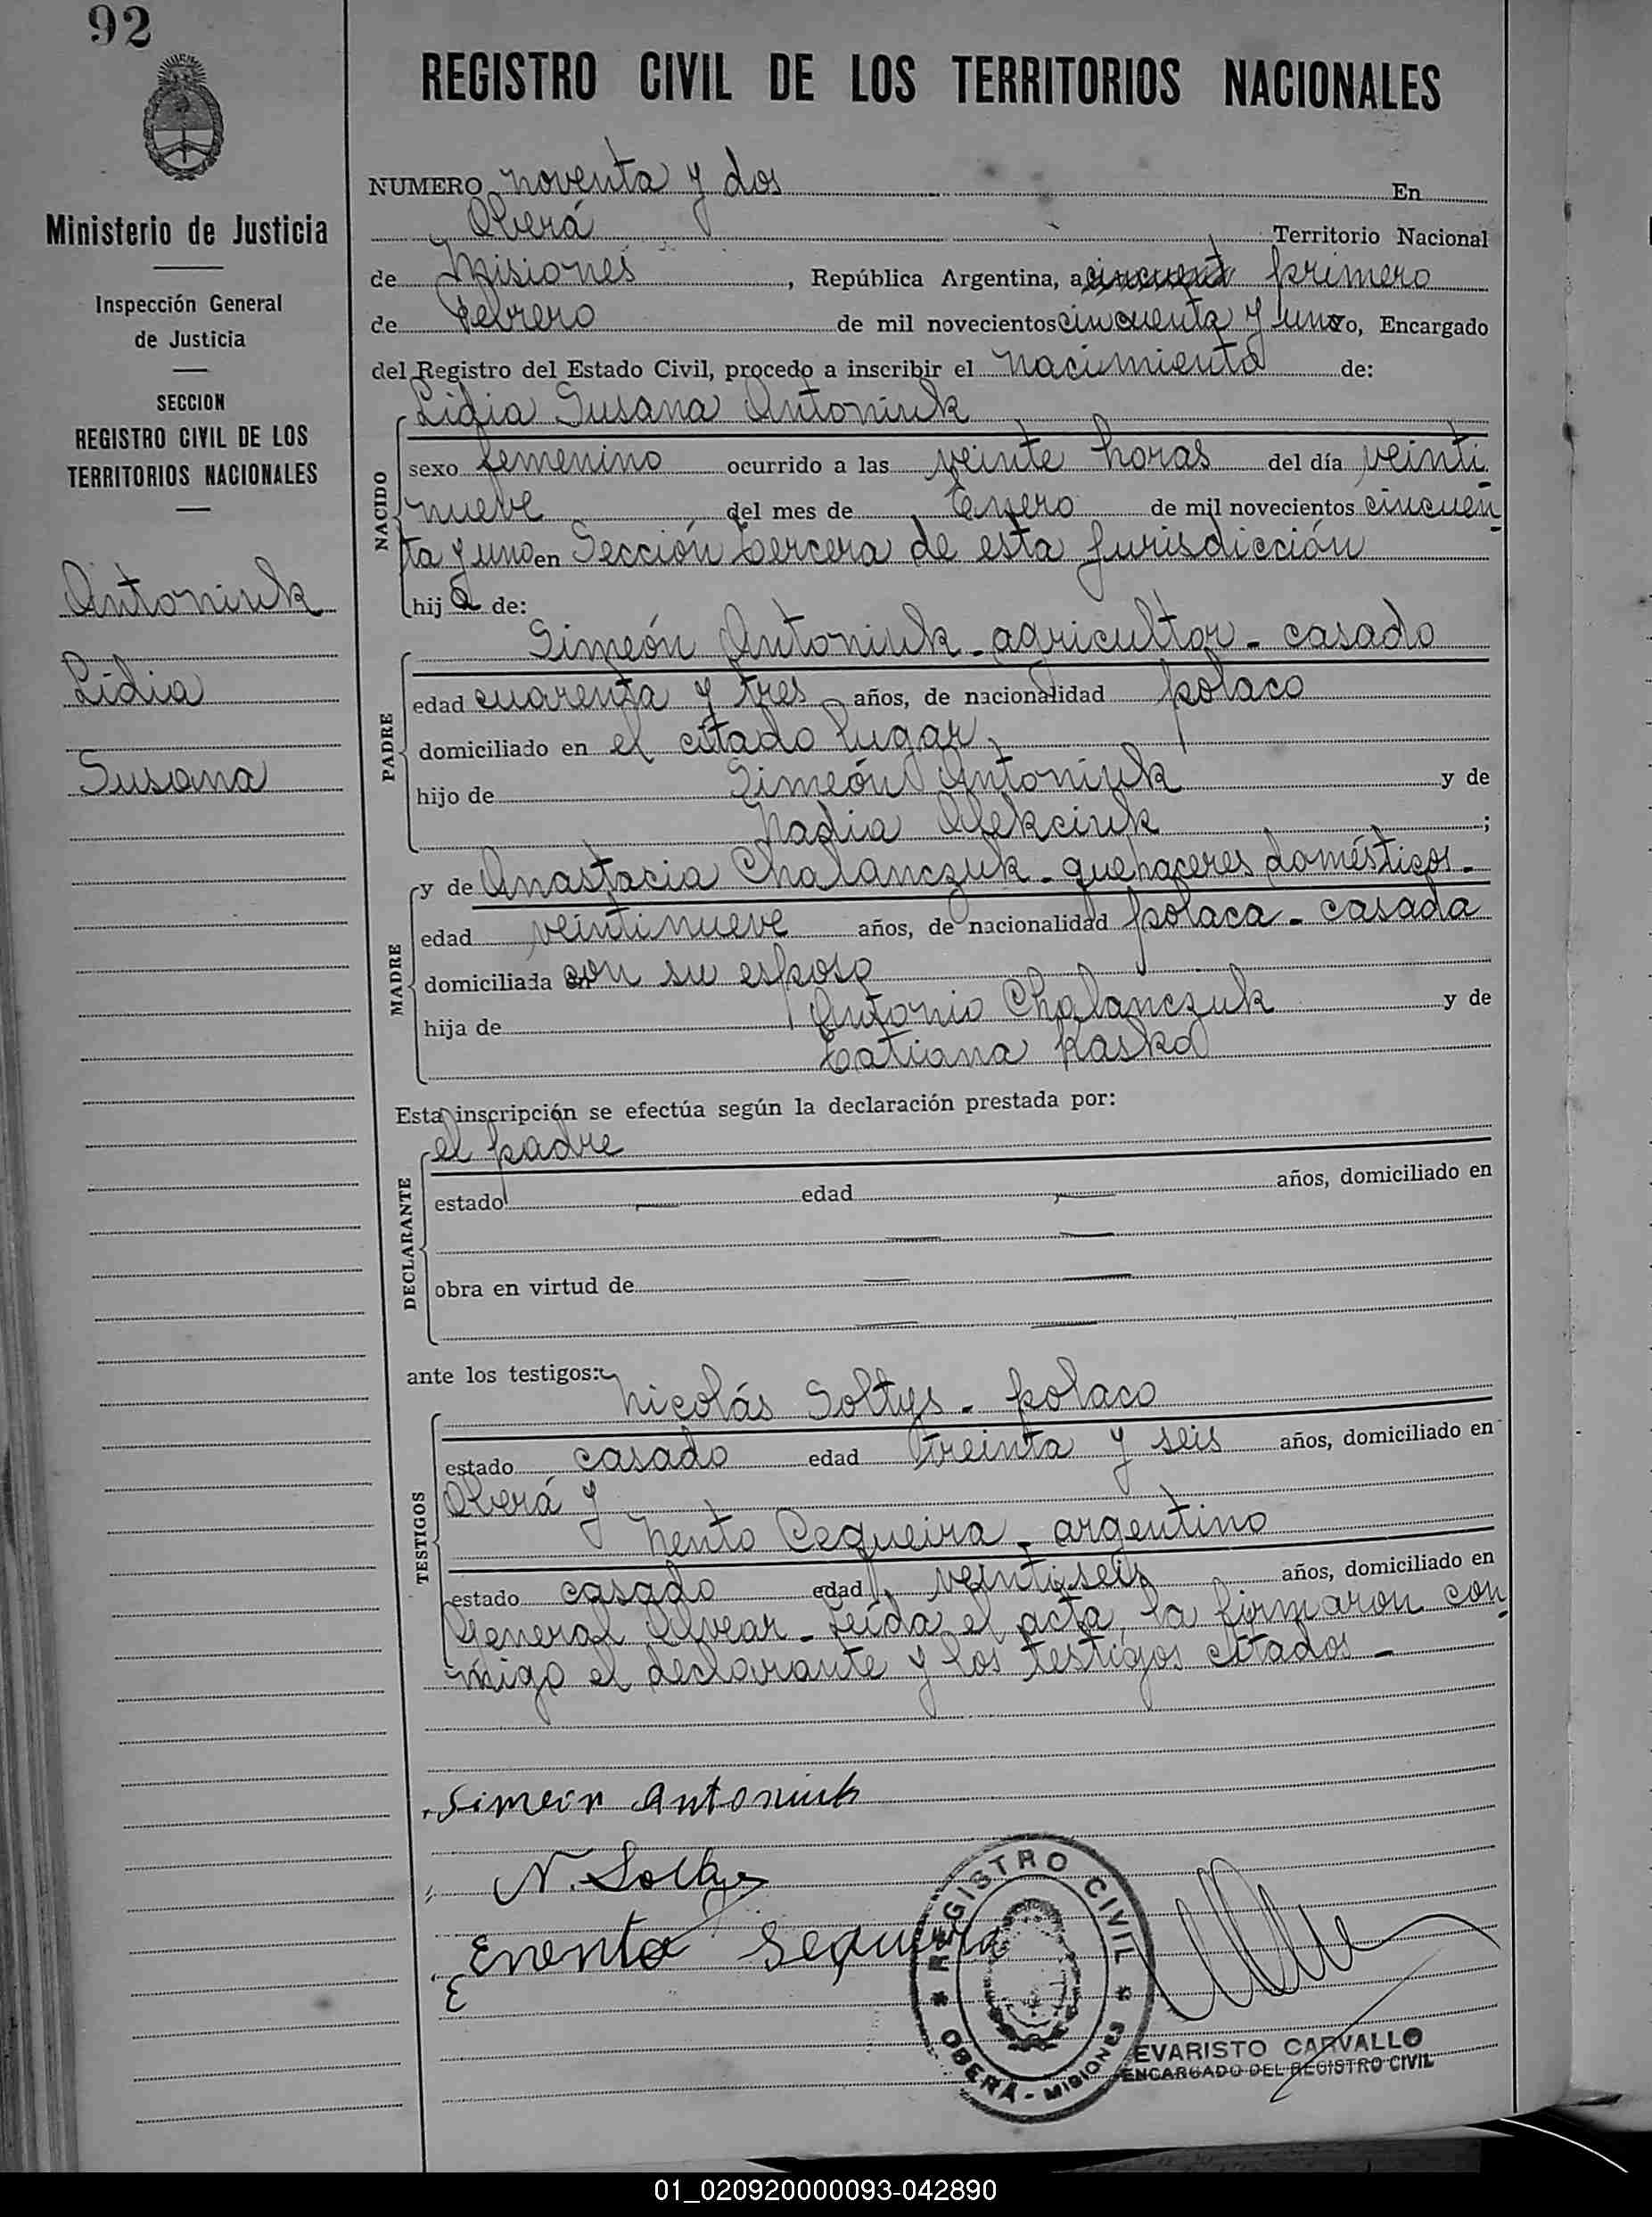 92
REGISTRO CIVIL DE LOS TERRITORIOS NACIONALES
Ministerio de Justicia
Inspección General
de Justicia
SECCION
REGISTRO CIVIL DE LOS
TERRITORIOS NACIONALES
Antoniuk
Lidia
Susana
NUMERO noventa y dos En
Oberá Territorio Nacional
de Misiones, República Argentina, a primero
de Febrero de mil novecientos cincuenta y uno yo, Encargado
del Registro del Estado Civil, procedo a inscribir el nacimiento de:
NACIDO
Lidia Susana Antoniuk
sexo femenino ocurrido a las veinte horas del día veinti
nueve del mes de Enero de mil novecientos cincuen
ta y uno en Sección tercera de esta jurisdicción
hija de:
PADRE
Simeón Antoniuk - agricultor - casado
edad cuarenta y tres años, de nacionalidad polaco
domiciliado en el citado lugar
hijo de Simeón Antoniuk y de
Nadia Olekciuk ;
MADRE
y de Anastacia Chalanczuk - quehaceres domésticos -
edad veintinueve años, de nacionalidad polaca - casada
domiciliada con su esposo
hija de Antonio Chalanczuk y de
Tatiana Kasko
Esta inscripción se efectúa según la declaración prestada por:
DECLARANTE
el padre
estado edad años, domiciliado en
obra en virtud de
ante los testigos:
TESTIGOS
Nicolás Soltys - polaco
estado casado edad treinta y seis años, domiciliado en
Oberá y
Nento Cequeira - argentino
estado casado edad veintiseis años, domiciliado en
General Alvear - Leída el acta, la firmaron con
migo el declarante y los testigos citados -
Simeon Antoniuk
N. Soltys
Enento Sequeira
REGISTRO CIVIL
OBERÁ - MISIONES
EVARISTO CARVALLO
ENCARGADO DEL REGISTRO CIVIL
01_020920000093-042890